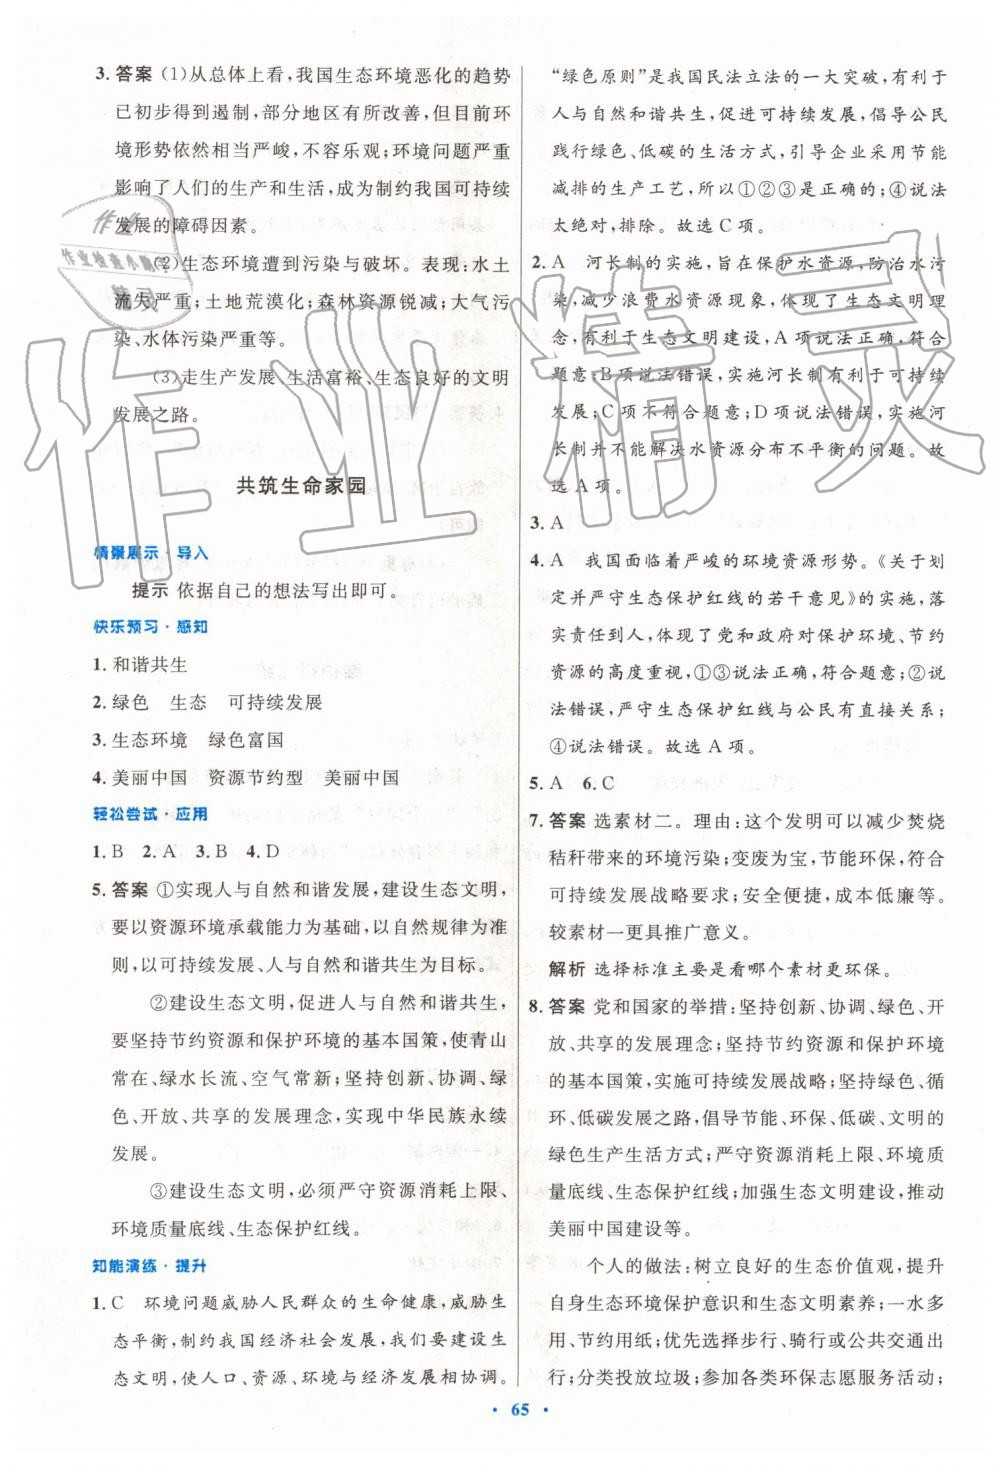 3. 答案 (1)从总体上看,我国生态环境恶化的趋势
已初步得到遏制,部分地区有所改善,但目前环
境形势依然相当严峻,不容乐观;环境问题严重
影响了人们的生产和生活,成为制约我国可持续
发展的障碍因素。
(2)生态环境遭到污染与破坏。表现:水土
流失严重;土地荒漠化;森林资源锐减;大气污
染、水体污染严重等。
(3)走生产发展、生活富裕、生态良好的文明
发展之路。
共筑生命家园
情景展示·导入
提示 依据自己的想法写出即可。
快乐预习·感知
1. 和谐共生
2. 绿色 生态 可持续发展
3. 生态环境 绿色富国
4. 美丽中国 资源节约型 美丽中国
轻松尝试·应用
1. B 2. A 3. B 4. D
5. 答案 ①实现人与自然和谐发展,建设生态文明,
要以资源环境承载能力为基础,以自然规律为准
则,以可持续发展、人与自然和谐共生为目标。
②建设生态文明,促进人与自然和谐共生,
要坚持节约资源和保护环境的基本国策,使青山
常在、绿水长流、空气常新;坚持创新、协调、绿
色、开放、共享的发展理念,实现中华民族永续
发展。
③建设生态文明,必须严守资源消耗上限、
环境质量底线、生态保护红线。
知能演练·提升
1. C 环境问题威胁人民群众的生命健康,威胁生
态平衡,制约我国经济社会发展,我们要建设生
态文明,使人口、资源、环境与经济发展相协调。
“绿色原则”是我国民法立法的一大突破,有利于
人与自然和谐共生,促进可持续发展,倡导公民
践行绿色、低碳的生活方式,引导企业采用节能
减排的生产工艺,所以①②③是正确的;④说法
太绝对,排除。故选 C 项。
2. A 河长制的实施,旨在保护水资源,防治水污
染,减少浪费水资源现象,体现了生态文明理
念,有利于生态文明建设,A 项说法正确,符合
题意;B 项说法错误,实施河长制有利于可持续
发展;C 项不符合题意;D 项说法错误,实施河
长制并不能解决水资源分布不平衡的问题。故
选 A 项。
3. A
4. A 我国面临着严峻的环境资源形势。《关于划
定并严守生态保护红线的若干意见》的实施,落
实责任到人,体现了党和政府对保护环境、节约
资源的高度重视,①③说法正确,符合题意;②说
法错误,严守生态保护红线与公民有直接关系;
④说法错误。故选 A 项。
5. A 6. C
7. 答案 选素材二。理由:这个发明可以减少焚烧
秸秆带来的环境污染;变废为宝,节能环保,符合
可持续发展战略要求;安全便捷,成本低廉等。
较素材一更具推广意义。
解析 选择标准主要是看哪个素材更环保。
8. 答案 党和国家的举措:坚持创新、协调、绿色、开
放、共享的发展理念;坚持节约资源和保护环境
的基本国策,实施可持续发展战略;坚持绿色、循
环、低碳发展之路,倡导节能、环保、低碳、文明的
绿色生产生活方式;严守资源消耗上限、环境质
量底线、生态保护红线;加强生态文明建设,推动
美丽中国建设等。
个人的做法:树立良好的生态价值观,提升
自身生态环境保护意识和生态文明素养;一水多
用、节约用纸;优先选择步行、骑行或公共交通出
行;分类投放垃圾;参加各类环保志愿服务活动;
· 65 ·
作业精灵
作业
作业检查小助手
精灵